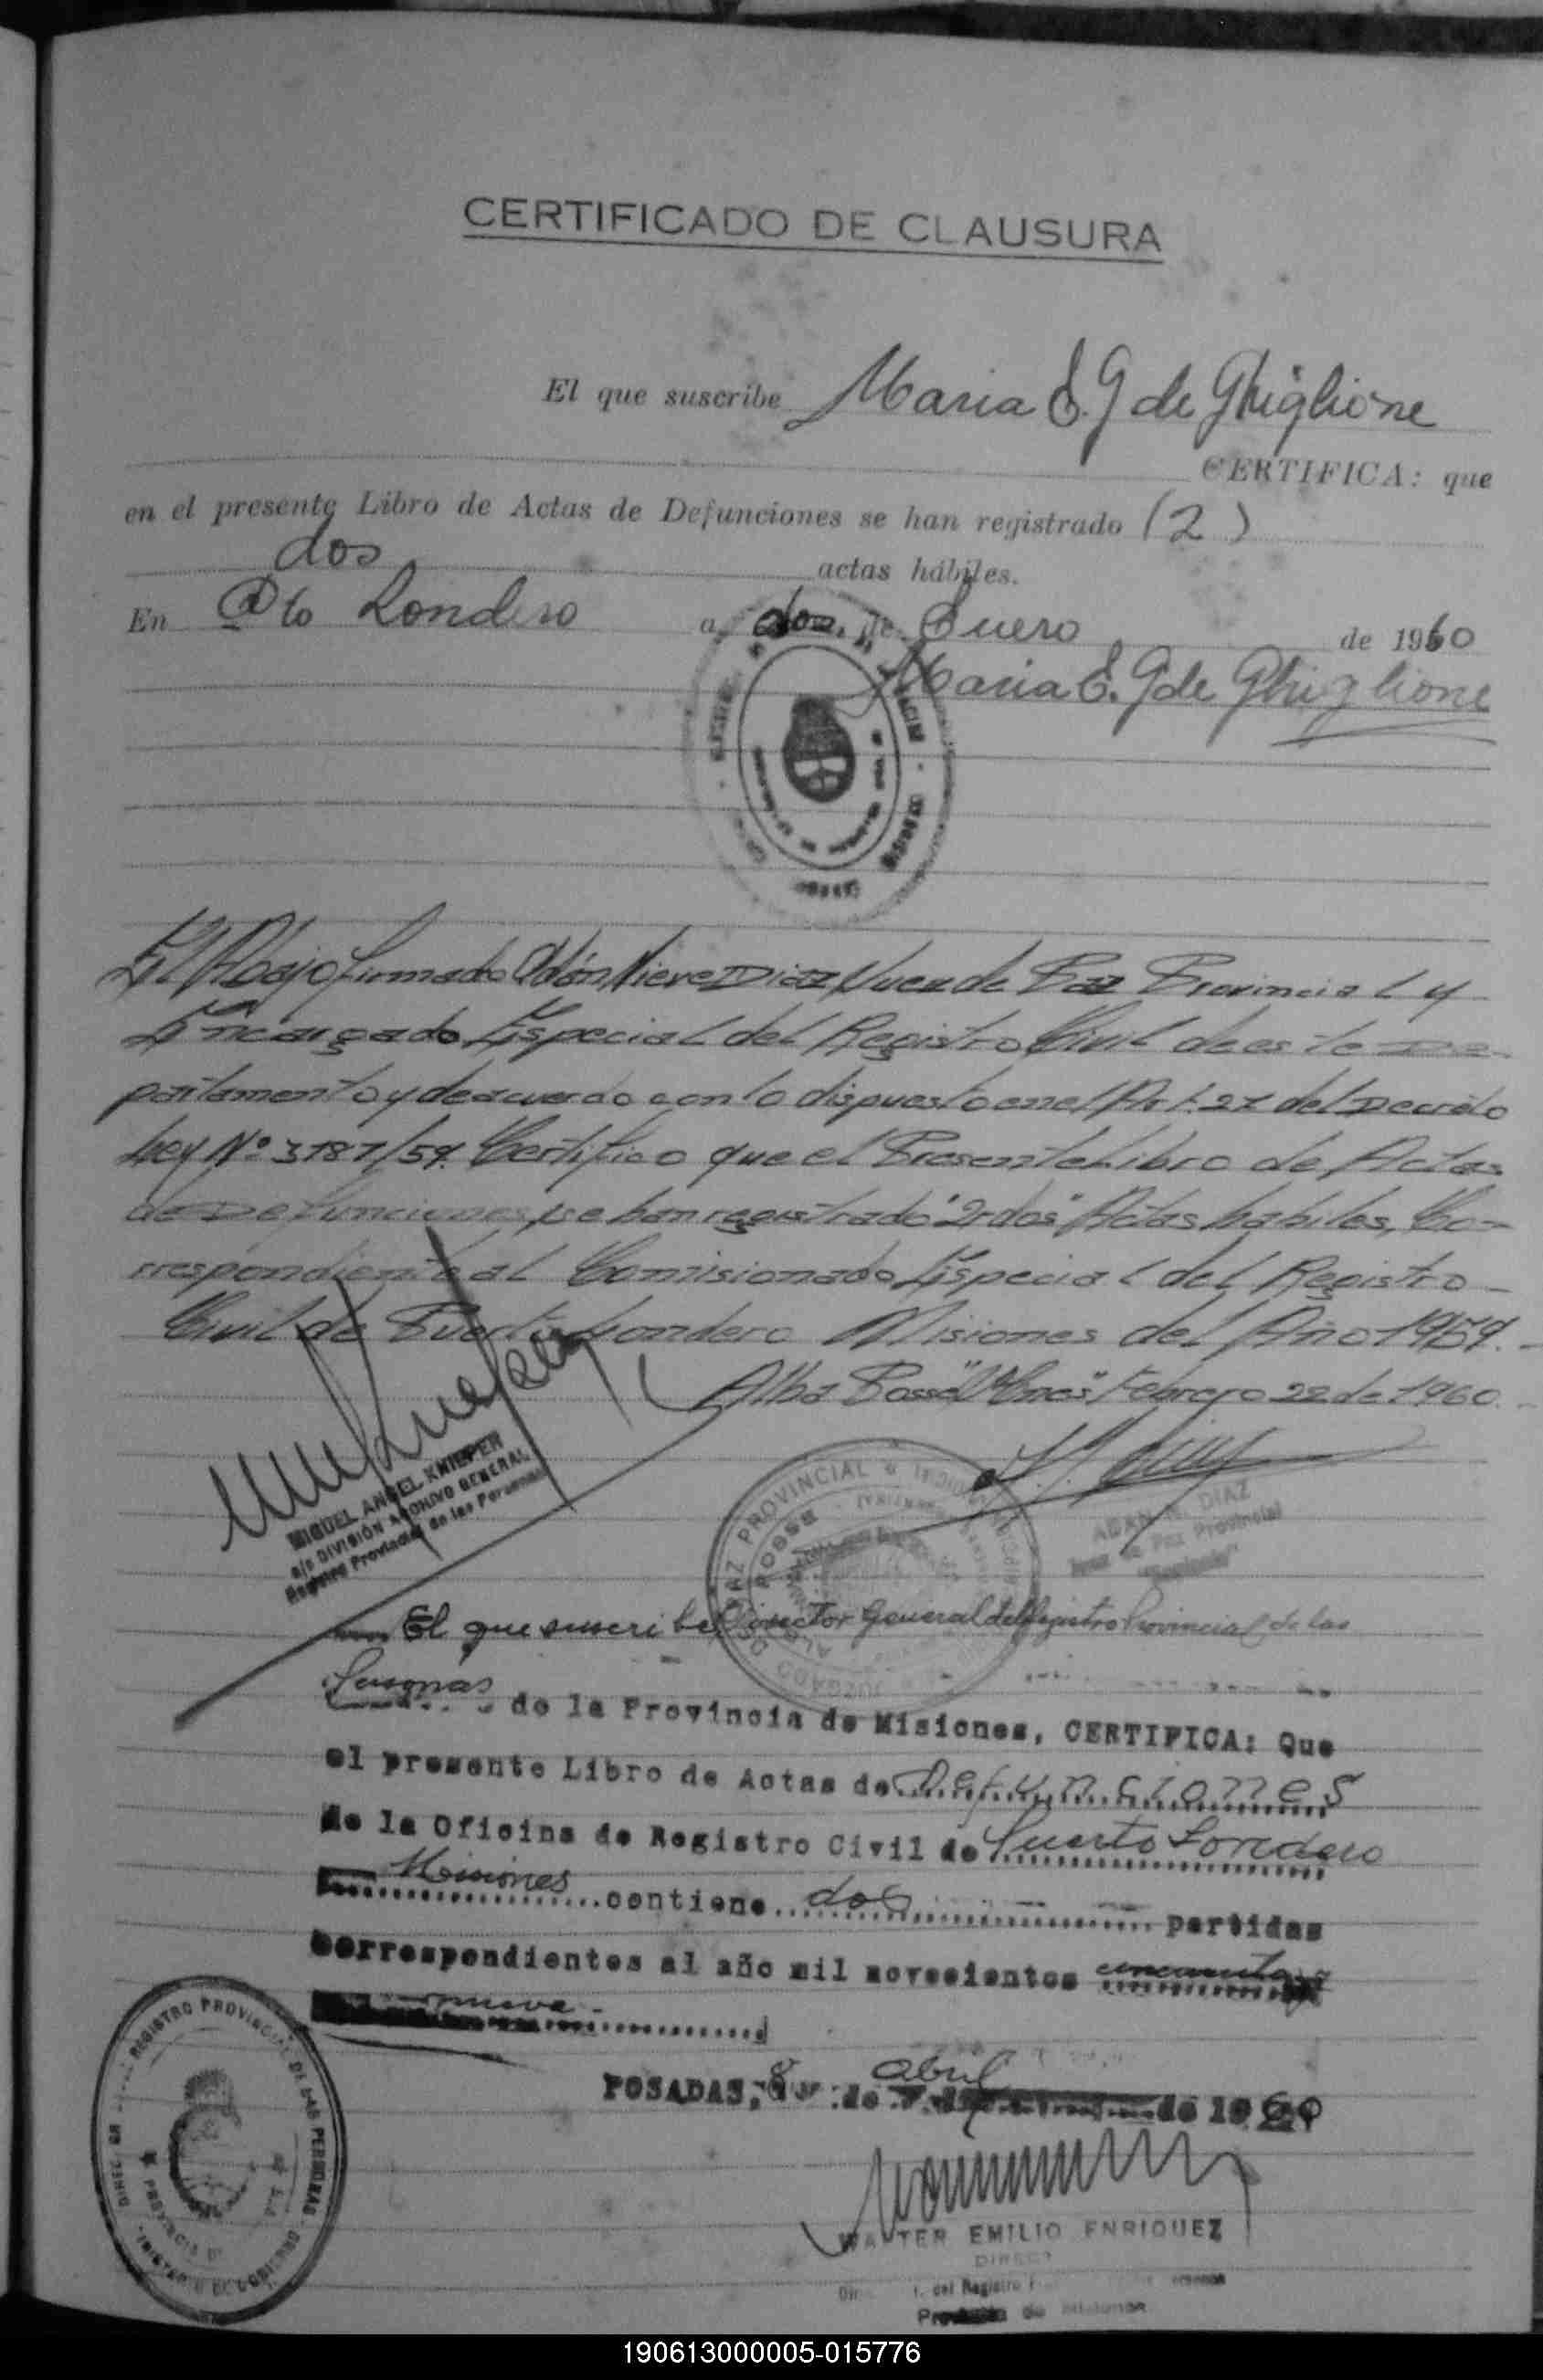 CERTIFICADO DE CLAUSURA
El que suscribe Maria E. G de Ghiglione
CERTIFICA: que
en el presente Libro de Actas de Defunciones se han registrado (2)
dos actas hábiles.
En Pto Londero a dos de Enero de 1960
Maria E. G de Ghiglione
El Abajo firmado Adán Nieve Diaz Juez de Paz Provincial y
Encargado Especial del Registro Civil de este De-
partamento y de acuerdo con lo dispuesto en el Art. 27 del Decreto
Ley Nº 3187/59. Certifico que el Presente Libro de Actas
de Defunciones, se han registrado "2 dos" Actas habiles, Co-
rrespondiente al Comisionado Especial del Registro
Civil de Puerto Londero Misiones del Año 1959.-
Alba Posse "Mnes" Febrero 22 de 1960.-
MIGUEL ANGEL KNIEPER
a/c DIVISIÓN ARCHIVO GENERAL
Registro Provincial de las Personas
ADAN N. DIAZ
Juez de Paz Provincial
El que suscribe Director General del Registro Provincial de las
Personas de la Provincia de Misiones, CERTIFICA: Que
el presente Libro de Actas de Defunciones
de la Oficina de Registro Civil de Puerto Londero
Misiones contiene dos partidas
correspondientes al año mil novecientos cincuenta y
nueve.-
POSADAS, 8 de abril de 1960
REGISTRO PROVINCIAL DE LAS PERSONAS
WALTER EMILIO ENRIQUEZ
del Registro
Provincia de Misiones
190613000005-015776